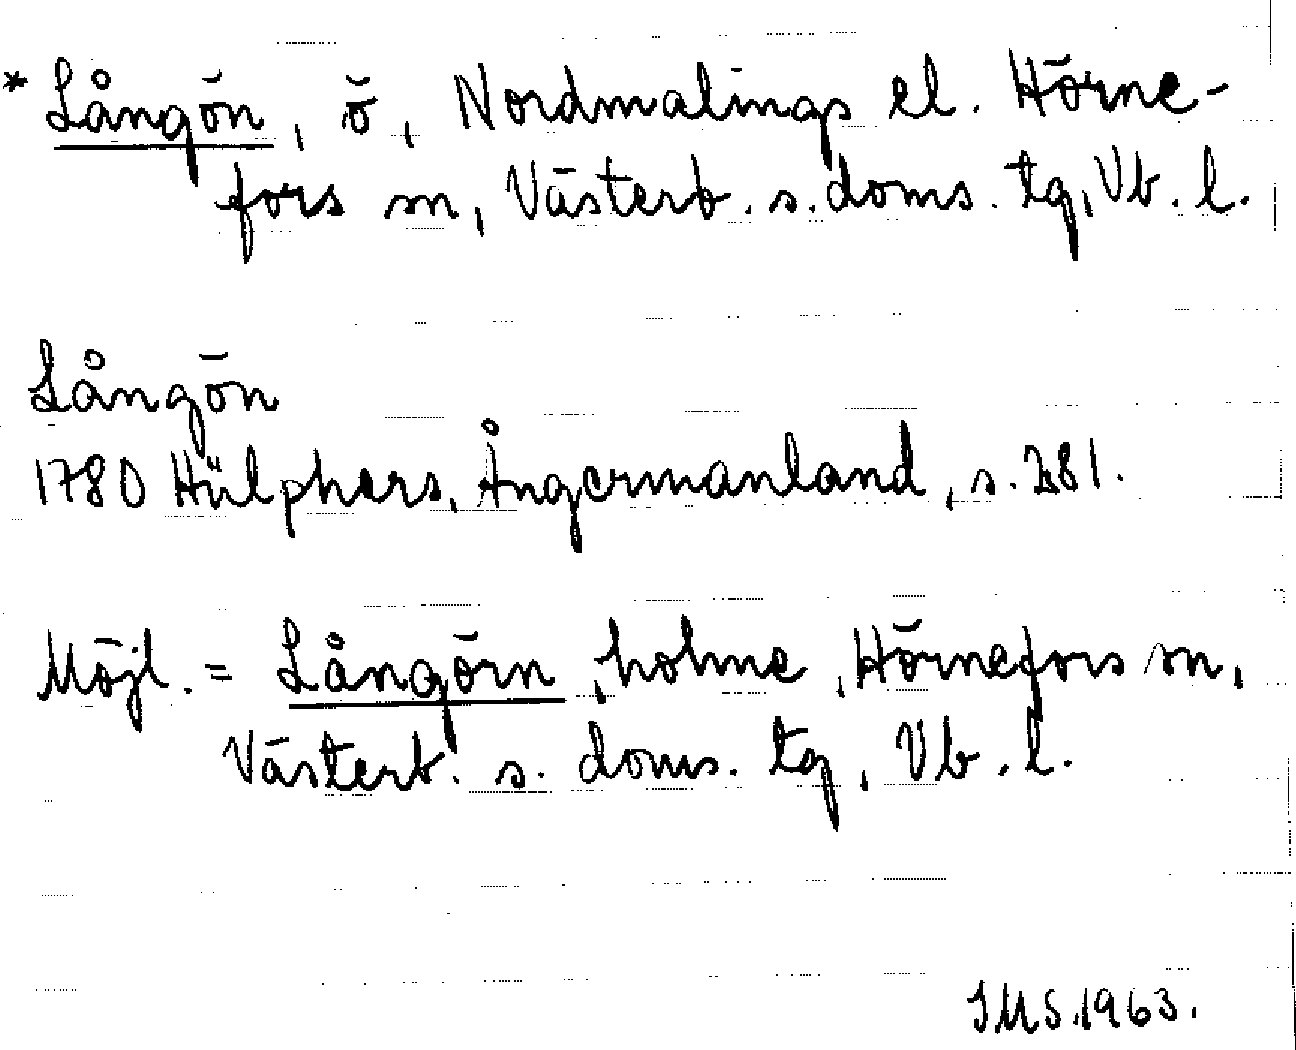 * Långön, ö, Nordmalings el. Hörne-
fors sn, Västerb. s. doms. tg, Vb. l.
Långön
1780 Hülphers, Ångermanland, s. 281.
Möjl. = Långörn, holme, Hörnefors sn,
Västerb. s. doms. tg, Vb. l.
IMS.1963.